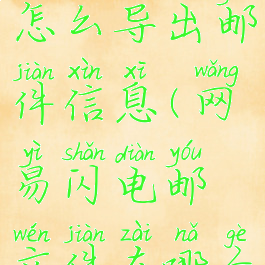 怎么导出邮
jiàn xìn xī wǎng
件信息(网
yì shǎn diàn yóu
易闪电邮
wén jiàn zài nǎ gè
文件在哪个